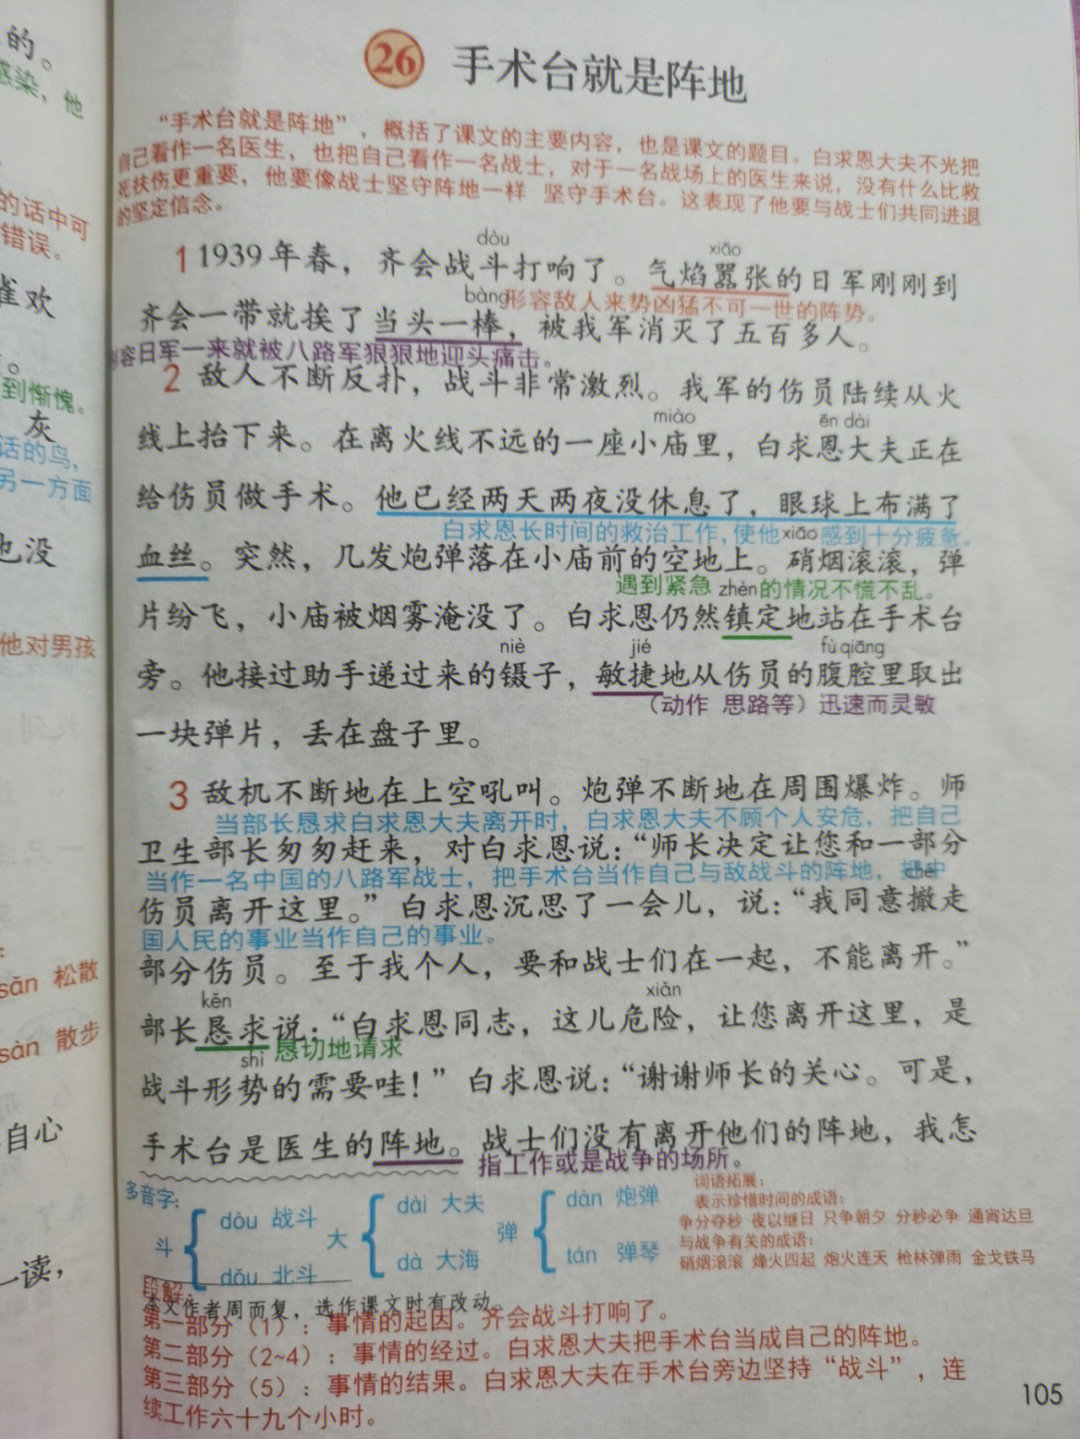 的。
感染，他
的话中可
错误。
雀欢
。
到惭愧。
灰
话的鸟，
另一方面
也没
他对男孩
：
sǎn 松散
sàn 散步
自心
读，
26 手术台就是阵地
“手术台就是阵地”，概括了课文的主要内容，也是课文的题目。白求恩大夫不光把
自己看作一名医生，也把自己看作一名战士，对于一名战场上的医生来说，没有什么比救
死扶伤更重要，他要像战士坚守阵地一样 坚守手术台。这表现了他要与战士们共同进退
的坚定信念。
dòu xiāo
1 1939年春，齐会战斗打响了。气焰嚣张的日军刚刚到
bàng 形容敌人来势凶猛不可一世的阵势。
齐会一带就挨了当头一棒，被我军消灭了五百多人。
形容日军一来就被八路军狠狠地迎头痛击。
2 敌人不断反扑，战斗非常激烈。我军的伤员陆续从火
miào ēn dài
线上抬下来。在离火线不远的一座小庙里，白求恩大夫正在
给伤员做手术。他已经两天两夜没休息了，眼球上布满了
白求恩长时间的救治工作，使他 xiāo 感到十分疲惫。
血丝。突然，几发炮弹落在小庙前的空地上。硝烟滚滚，弹
遇到紧急 zhèn 的情况不慌不乱。
片纷飞，小庙被烟雾淹没了。白求恩仍然镇定地站在手术台
niè jié fù qiāng
旁。他接过助手递过来的镊子，敏捷地从伤员的腹腔里取出
（动作 思路等）迅速而灵敏
一块弹片，丢在盘子里。
3 敌机不断地在上空吼叫。炮弹不断地在周围爆炸。师
当部长恳求白求恩大夫离开时，白求恩大夫不顾个人安危，把自己
卫生部长匆匆赶来，对白求恩说：“师长决定让您和一部分
当作一名中国的八路军战士，把手术台当作自己与敌战斗的阵地，把中
chè
伤员离开这里。”白求恩沉思了一会儿，说：“我同意撤走
国人民的事业当作自己的事业。
部分伤员。至于我个人，要和战士们在一起，不能离开。”
kěn xiǎn
部长恳求说：“白求恩同志，这儿危险，让您离开这里，是
shì 恳切地请求
战斗形势的需要哇！”白求恩说：“谢谢师长的关心。可是，
手术台是医生的阵地。战士们没有离开他们的阵地，我怎
指工作或是战争的场所。
多音字：
斗 { dòu 战斗 dǒu 北斗
大 { dài 大夫 dà 大海
弹 { dàn 炮弹 tán 弹琴
词语拓展：
表示珍惜时间的成语：
争分夺秒 夜以继日 只争朝夕 分秒必争 通宵达旦
与战争有关的成语：
硝烟滚滚 烽火四起 炮火连天 枪林弹雨 金戈铁马
段解：
本文作者周而复，选作课文时有改动。
第一部分（1）：事情的起因。齐会战斗打响了。
第二部分（2~4）：事情的经过。白求恩大夫把手术台当成自己的阵地。
第三部分（5）：事情的结果。白求恩大夫在手术台旁边坚持“战斗”，连
续工作六十九个小时。
105